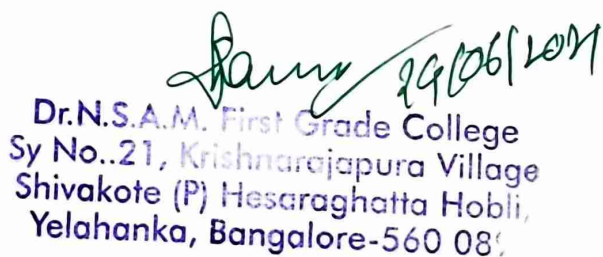 29/06/2021
Dr.N.S.A.M. First Grade College
Sy No..21, Krishnarajapura Village
Shivakote (P) Hesaraghatta Hobli,
Yelahanka, Bangalore-560 08